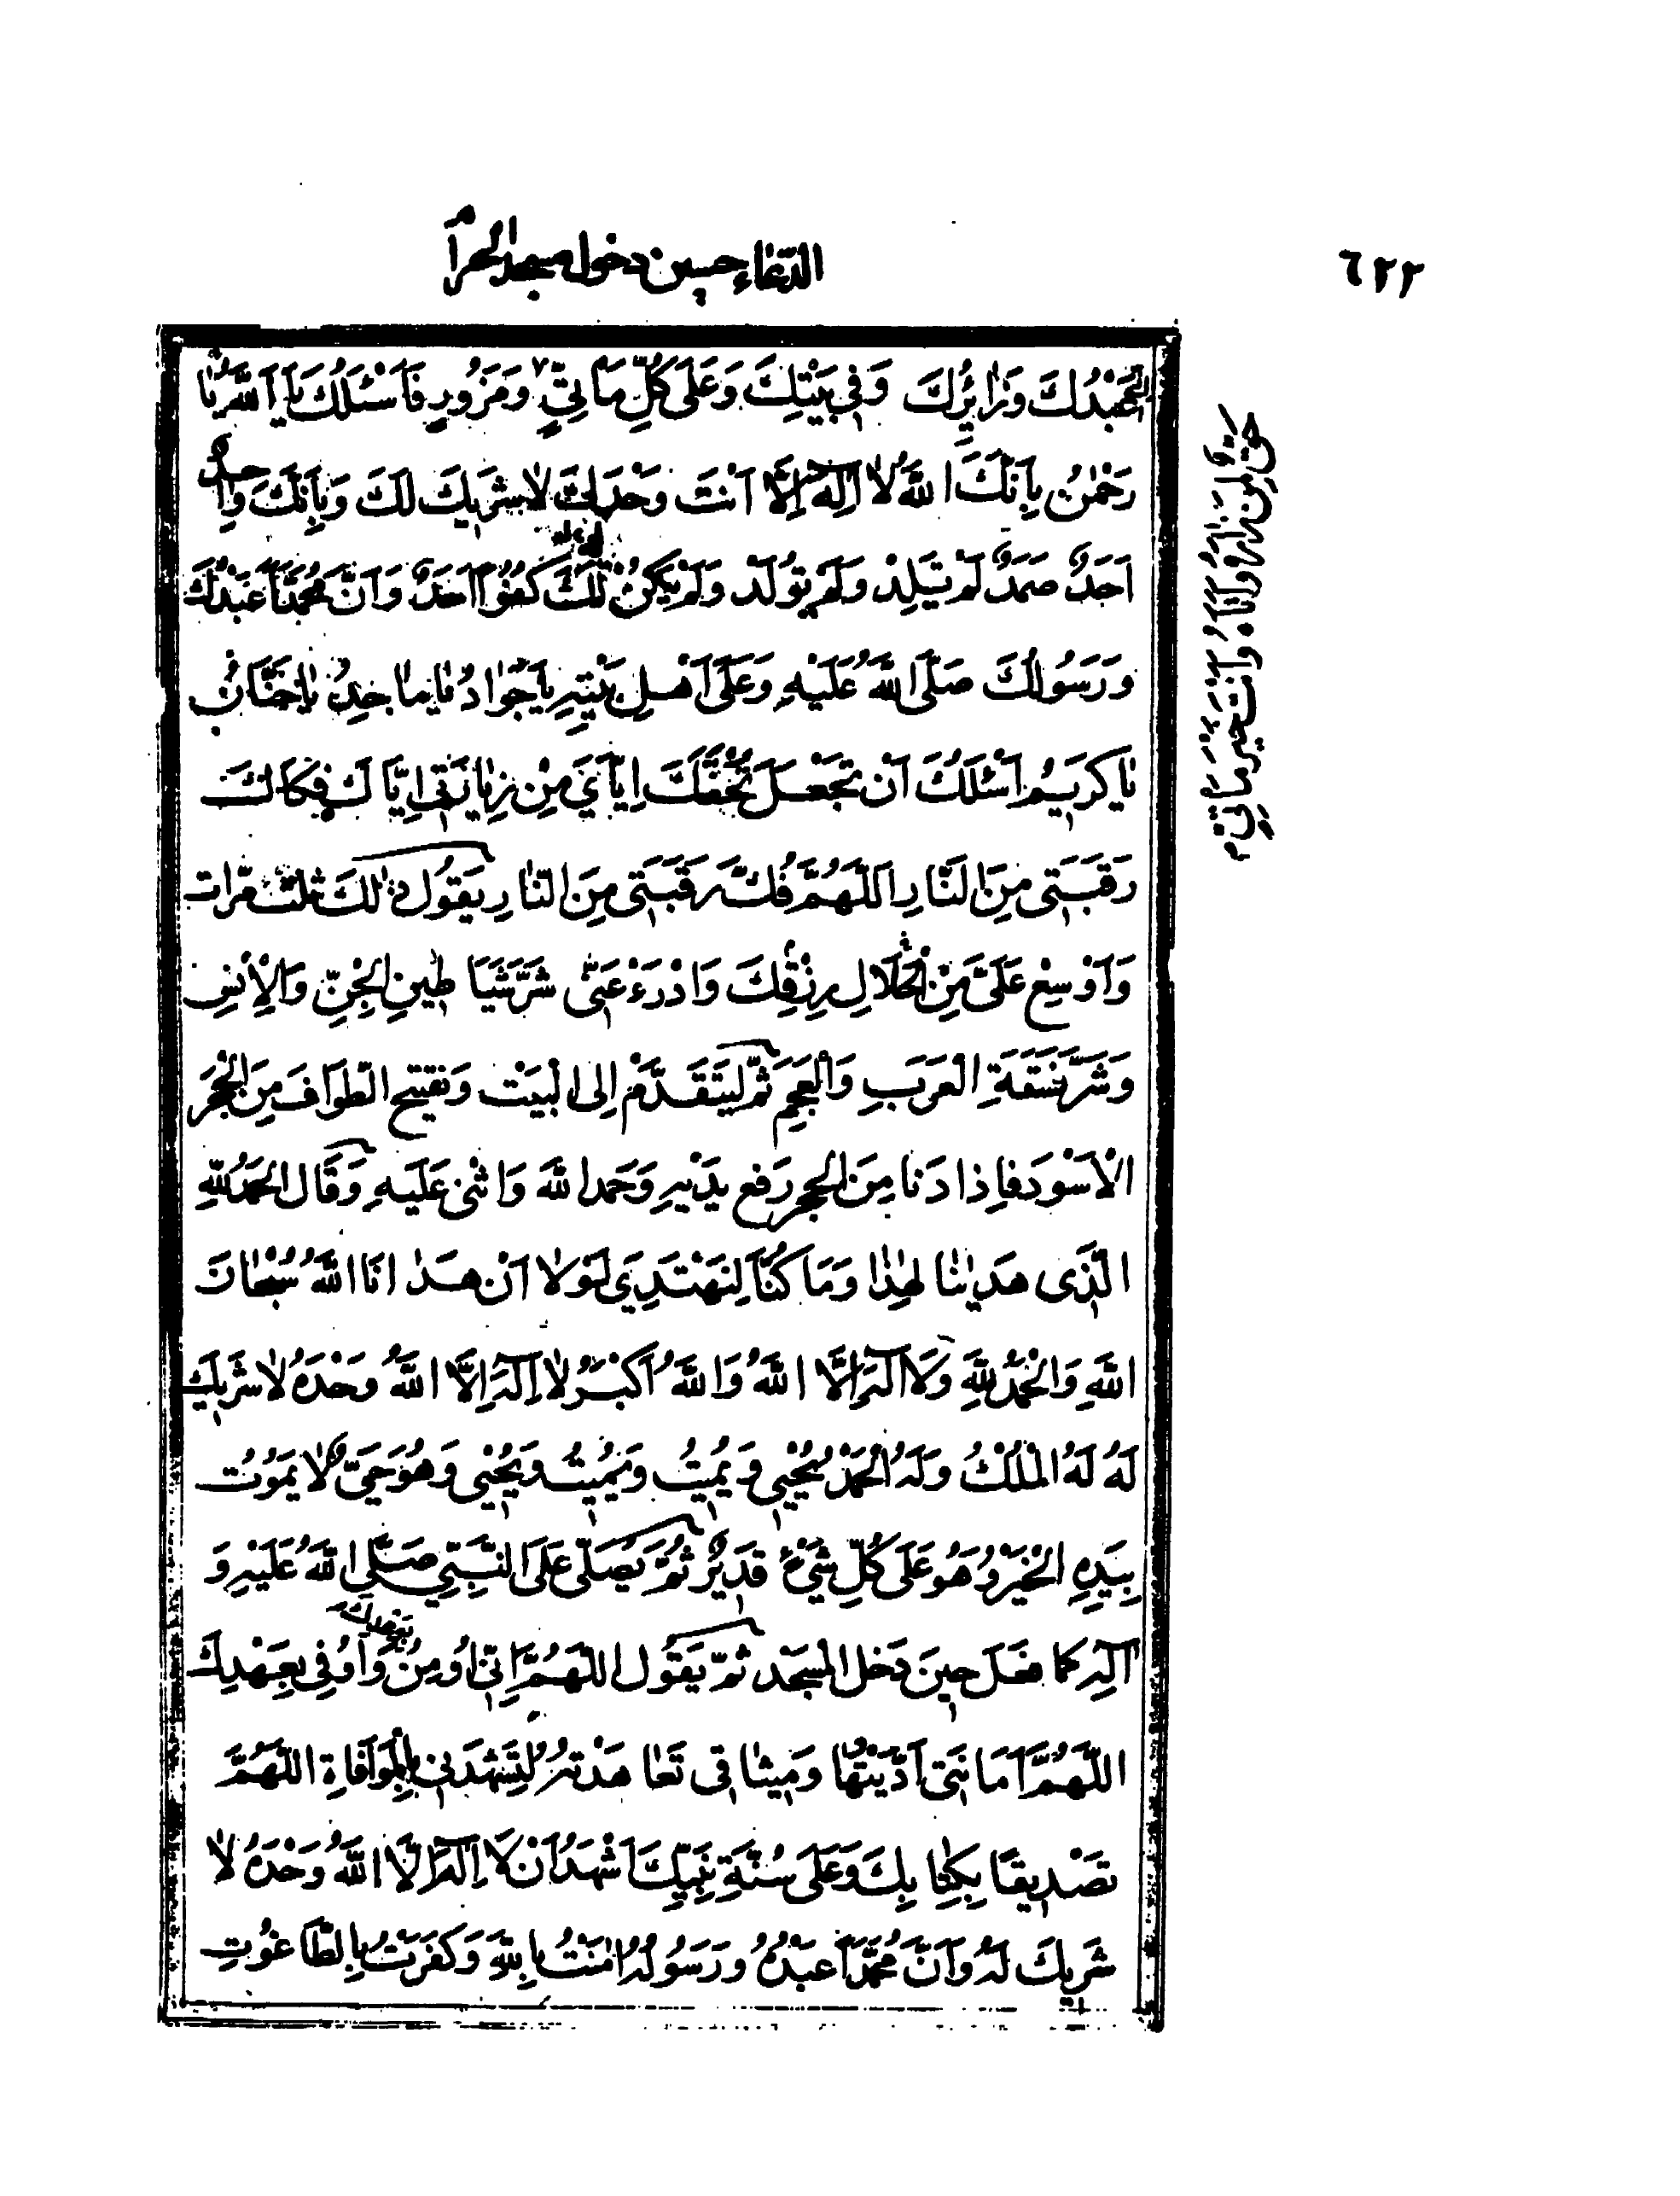 ٦٢٢
الدّعاء حين دخول مسجد الحرام
عَبْدُكَ وَزٰائِرُكَ وَفِي بَيْتِكَ وَعَلَى كُلِّ مَأتِيٍّ وَمَزُورٍ فَاَسْئَلُكَ يٰا اَللّٰهُ يٰا
رَحْمٰنُ بِاَنَّكَ اللّٰهُ لٰا اِلٰهَ اِلَّا اَنْتَ وَحْدَكَ لٰا شَرِيكَ لَكَ وَبِاَنَّكَ وٰاحِدٌ
اَحَدٌ صَمَدٌ لَمْ تَلِدْ وَلَمْ تُولَدْ وَلَمْ يَكُنْ لَكَ كُفُوًا اَحَدٌ وَاَنَّ مُحَمَّدًا عَبْدُكَ
وَرَسُولُكَ صَلَّى اللّٰهُ عَلَيْهِ وَعَلَى اَهْلِ بَيْتِهِ يٰا جَوٰادُ يٰا مٰاجِدُ يٰا حَنّٰانُ
يٰا كَرِيمُ اَسْئَلُكَ اَنْ تَجْعَلَ تُحْفَتَكَ اِيّٰايَ مِنْ زِيٰارَتِي اِيّٰاكَ فِكٰاكَ
رَقَبَتِي مِنَ النّٰارِ اَللّٰهُمَّ فُكَّ رَقَبَتِي مِنَ النّٰارِ يَقُولُ ذٰلِكَ ثَلٰثَ مَرّٰات
وَاَوْسِعْ عَلَيَّ مِنَ الْحَلٰالِ رِزْقِكَ وَادْرَءْ عَنّٰى شَرَّ شَيَاطِينِ الْجِنِّ وَالْاِنْسِ
وَشَرَّ فَسَقَةِ الْعَرَبِ وَالْعَجَمِ ثُمَّ لِيَتَقَدَّمْ اِلَى الْبَيْت وَيَفْتَتِح الطَّوَافَ مِنَ الْحَجَرِ
الْاَسْوَدِ فَاِذا دَنَا مِنَ الْحَجَرِ رَفَعَ يَدَيْهِ وَحَمِدَ اللّٰهَ وَاَثْنٰى عَلَيْهِ وَقَالَ الْحَمْدُ لِلّٰهِ
الَّذِى هَدٰينٰا لِهٰذٰا وَمَا كُنَّا لِنَهْتَدِيَ لَوْلٰا اَنْ هَدٰانَا اللّٰهُ سُبْحٰانَ
اللّٰهِ وَالْحَمْدُ لِلّٰهِ وَلَا اِلٰهَ اِلَّا اللّٰهُ وَاللّٰهُ اَكْبَرُ لٰا اِلٰهَ اِلَّا اللّٰهُ وَحْدَهُ لٰا شَرِيكَ
لَهُ لَهُ الْمُلْكُ وَلَهُ الْحَمْدُ يُحْيِي وَيُمِيتُ وَيُمِيتُ وَيُحْيِي وَهُوَ حَيٌّ لٰا يَمُوتُ
بِيَدِهِ الْخَيْرُ وَهُوَ عَلَى كُلِّ شَيْءٍ قَدِيرٌ ثُمَّ يُصَلِّى عَلَى النَّبِيِّ صَلَّى اللّٰهُ عَلَيْهِ وَ
آلِهِ كَمَا فَعَلَ حِينَ دَخَلَ الْمَسْجِدَ ثُمَّ يَقُولُ اللّٰهُمَّ اِنِّى اُومِنُ بِوَعْدِكَ وَاُوفِي بِعَهْدِكَ
اللّٰهُمَّ اَمَانَتِى اَدَّيْتُهَا وَمِيثٰاقِى تَعٰاهَدْتُهُ لِتَشْهَدَ لِي بِالْمُوَافَاةِ اللّٰهُمَّ
تَصْدِيقًا بِكِتٰابِكَ وَعَلَى سُنَّةِ نَبِيِّكَ اَشْهَدُ اَنْ لَا اِلٰهَ اِلَّا اللّٰهُ وَحْدَهُ لٰا
شَرِيكَ لَهُ وَاَنَّ مُحَمَّدًا عَبْدُهُ وَرَسُولُهُ اٰمَنْتُ بِاللّٰهِ وَكَفَرْتُ بِالطَّاغُوتِ
حَقٌّ لِمَنْ زٰارَهُ وَاَتٰاهُ وَاَنْتَ خَيْرُ مَأتِيٍّ